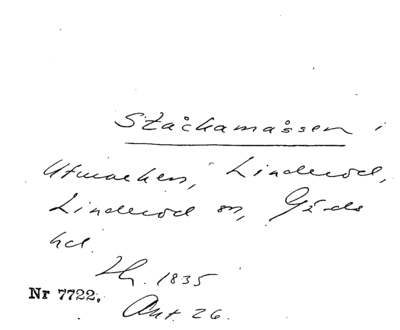 Stackamåssen i
Utmarken, Linderöd,
Linderöd sn, Gärds
hd.
Lh. 1835
Nr 7722. Akt. 26.